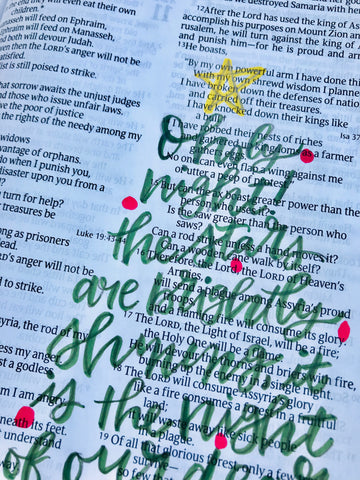 will even eat their own
will feed on Ephraim,
Ephraim will feed on Manasseh,
both will devour Judah.
even then the LORD's anger will not be
satisfied.
fist is still poised to strike.
that sorrow awaits the unjust judges
and those who issue unfair laws.
the poor of justice
the rights of the needy among my
widows
advantage of orphans.
do when I punish you,
disaster upon you from a
turn for help?
treasures be
Luke 19:43-44
along as prisoners
dead.
LORD's anger will not be
to strike.
Assyria, the rod of my
express my anger.
against a godless
I am angry
beneath its feet.
understand
way.
destroyed Samaria
12 After the Lord has used the king of
accomplish his purposes on Mount Zion and
Jerusalem, he will turn against the king of
and punish him—for he is proud and arr
13 He boasts,
"By my own powerful arm I have done th
With my own shrewd wisdom I planned
I have broken down the defenses of nation
carried off their treasures.
I have knocked down their kings like a bull.
Isa 37
14 I have robbed their nests of riches
and gathered up kingdoms as a farmer
gathers eggs.
No one can even flap a wing against me
or utter a peep of protest."
15 But can the ax boast greater power than the
person who uses it?
Is the saw greater than the person who
saws?
Can a rod strike unless a hand moves it?
Can a wooden cane walk by itself?
16 Therefore, the Lord, the LORD of Heaven's
Armies,
will send a plague among Assyria's proud
troops,
and a flaming fire will consume its glory.
17 The LORD, the Light of Israel, will be a fire;
the Holy One will be a flame.
He will devour the thorns and briers with fire,
burning up the enemy in a single night.
18 The LORD will consume Assyria's glory
like a fire consumes a forest in a fruitful
land;
it will waste away like sick people
in a plague.
19 Of all that glorious forest, only a few trees
survive—
so few that
O holy
night
the stars
are brightly
shining it
is the night
of our dear